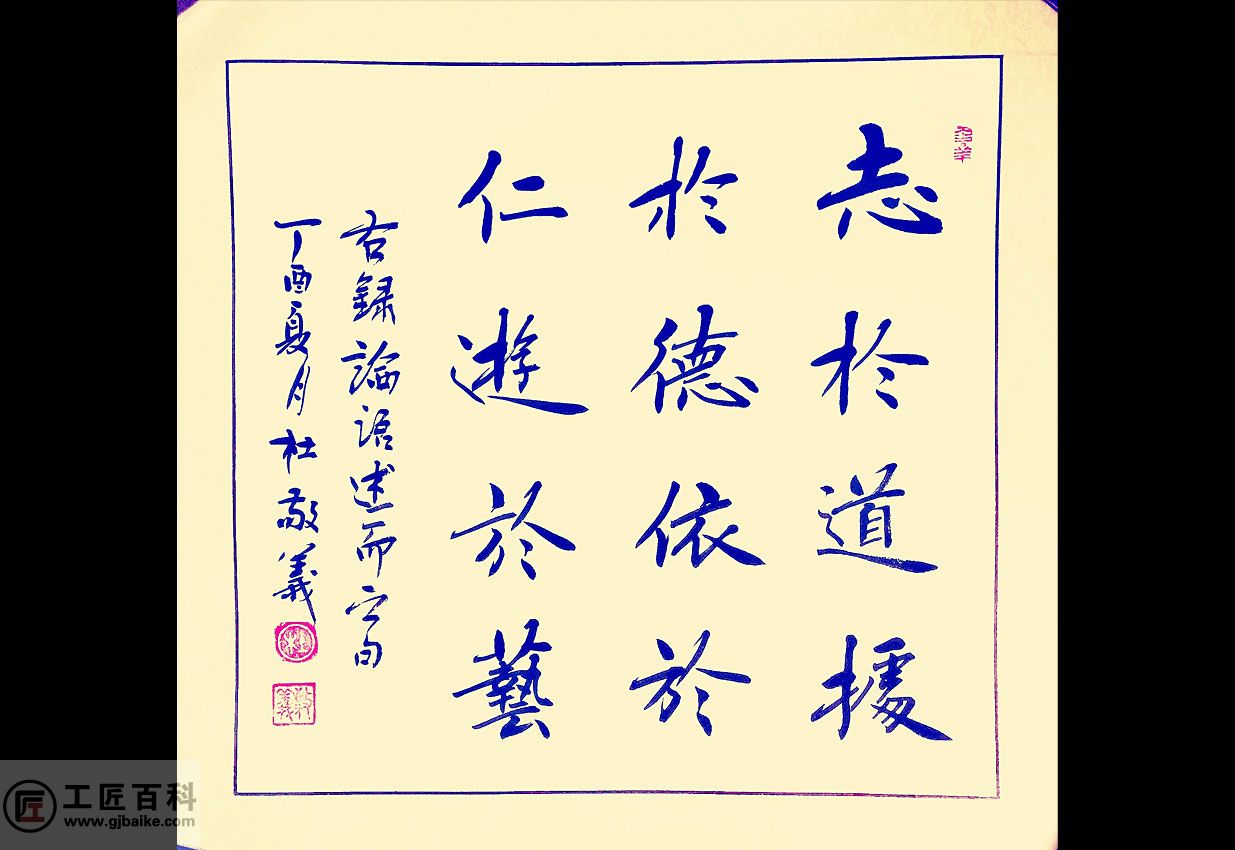 志於道據
於德依於
仁遊於藝
右録論語述而之句
丁酉夏月杜敬義
敬義
工匠百科
www.gjbaike.com